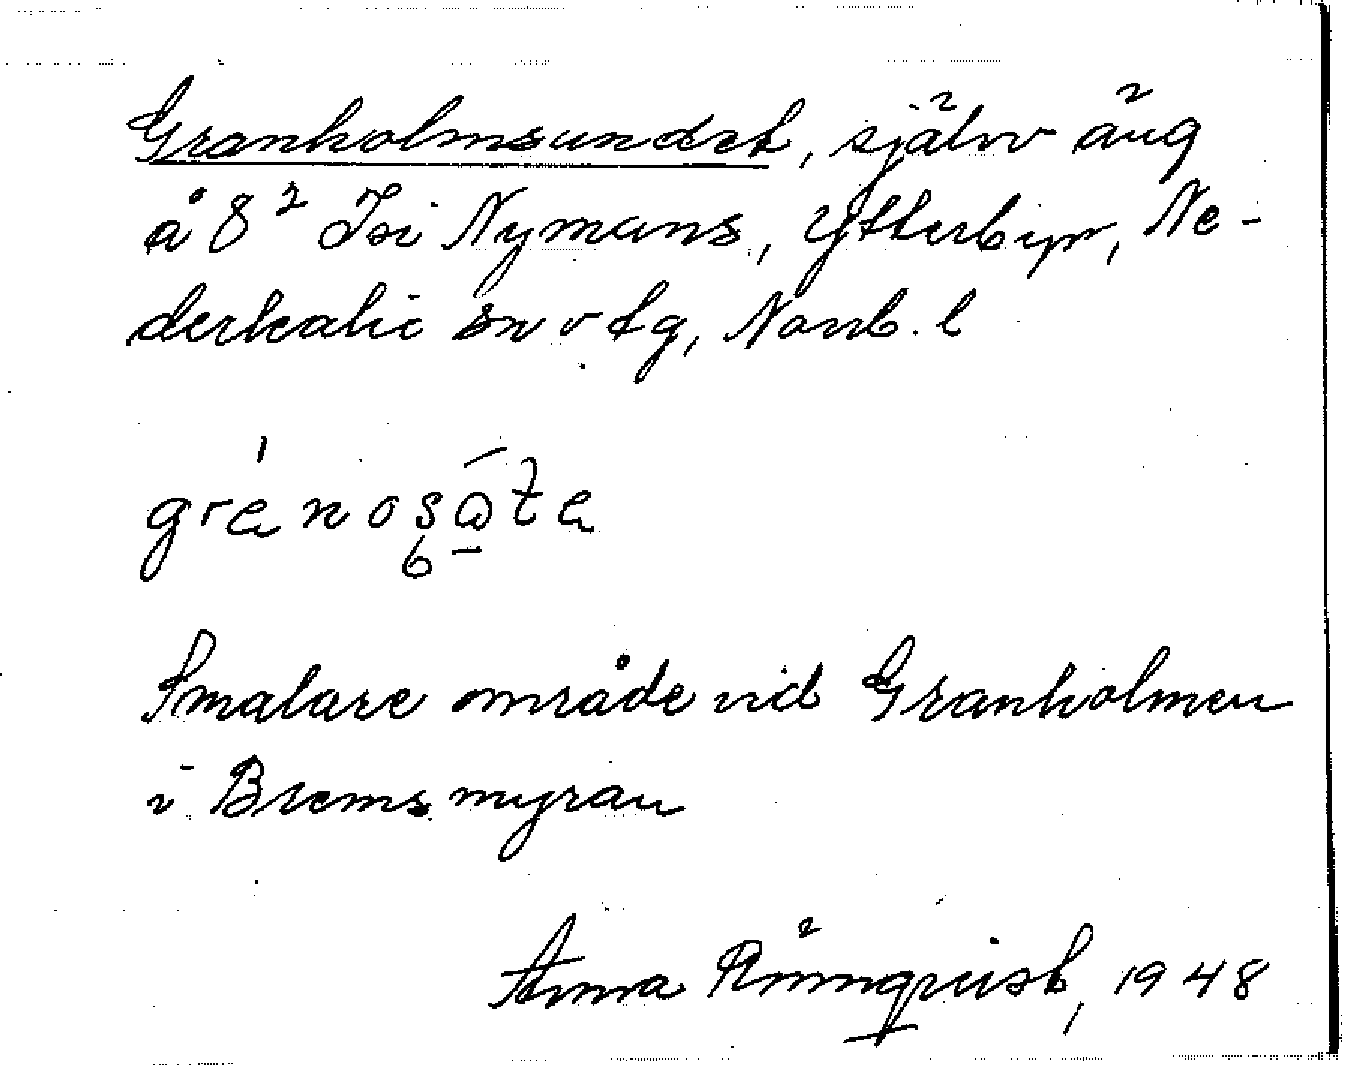 Granholmsundet, självv äng
å 8² Isi Nymans, Ytterbyn, Ne-
derkalix sn o tg, Norrb. l
Smalare område vid Granholmen
i Bremsmyran
Anna Rönnqvist, 1948